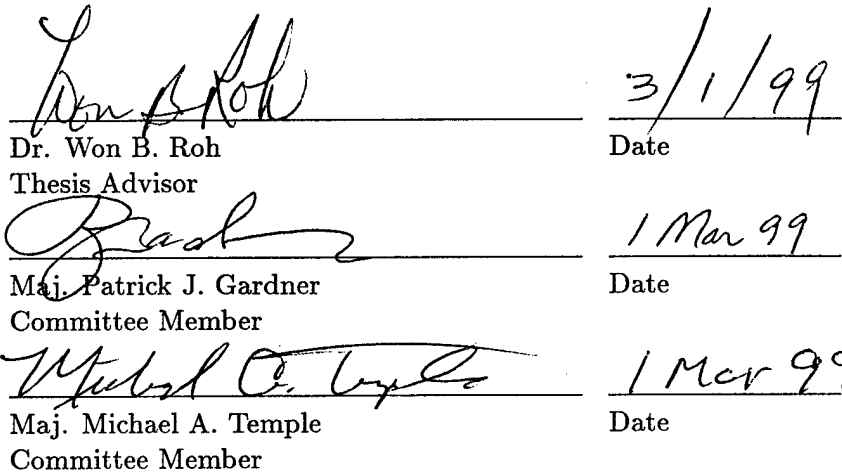 Won B Roh 3/1/99
Dr. Won B. Roh Date
Thesis Advisor
1 Mar 99
Maj. Patrick J. Gardner Date
Committee Member
Michael A. Temple 1 Mar 99
Maj. Michael A. Temple Date
Committee Member